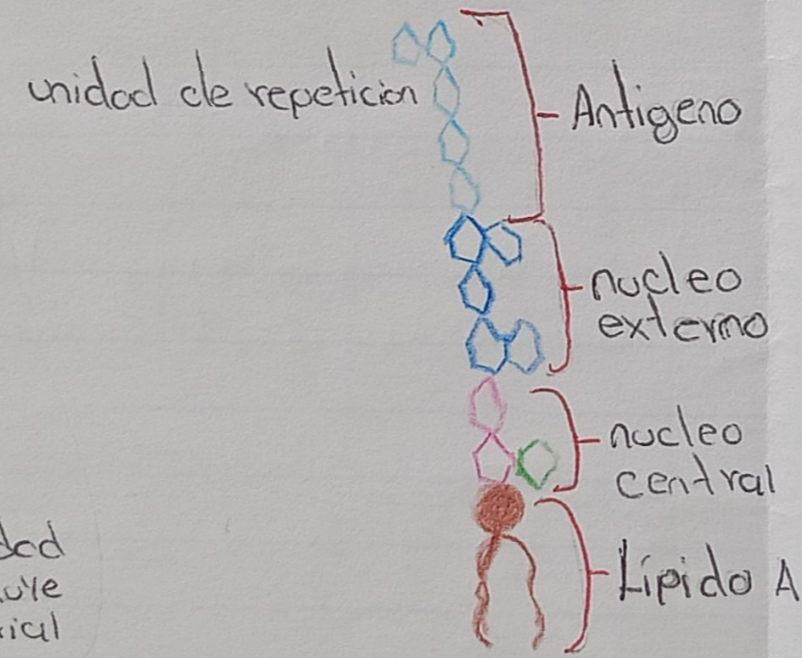 unidad de repeticion
Antigeno
nucleo
externo
nucleo
central
Lípido A